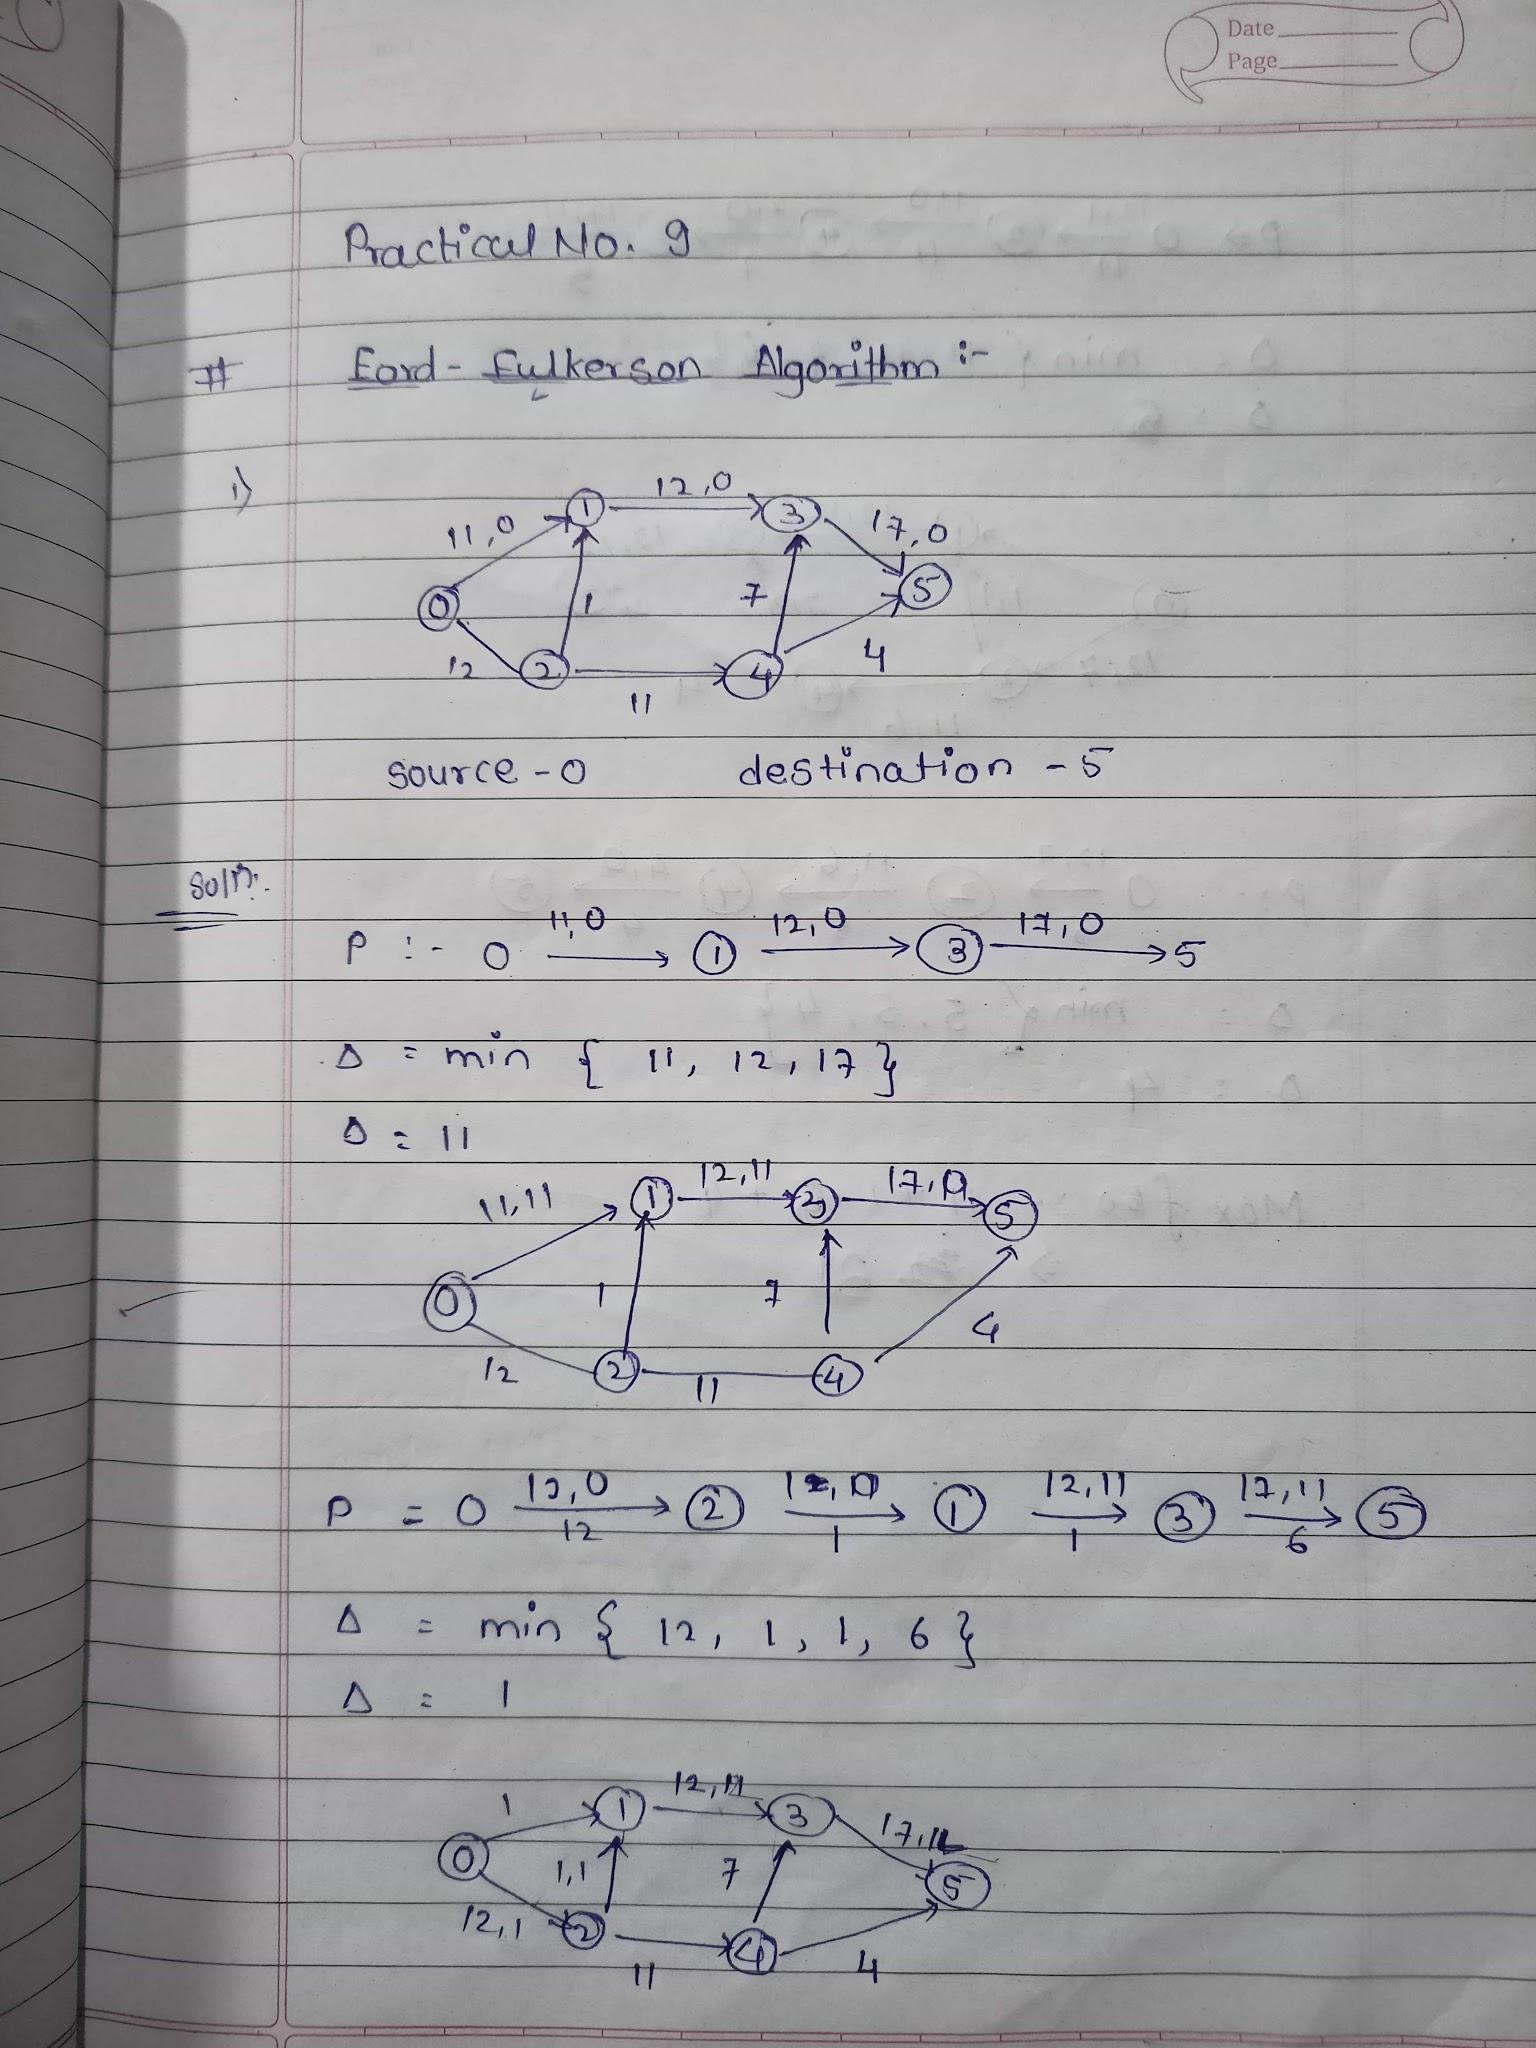 Date
Page
Practical No. 9
# Ford - Fulkerson Algorithm :-
1)
12,0
11,0 1 3 17,0
0 1 7 5
12 2 4 4
11
source - 0 destination - 5
Soln:
11,0 12,0 17,0
P :- 0 → 1 → 3 → 5
Δ = min { 11, 12, 17 }
Δ = 11
12,11
11,11 1 3 17,11 5
0 1 7
12 2 11 4 4
12,0 12,11 17,11
P = 0 → 2 → 1 → 3 → 5
12 1 1 6
Δ = min { 12, 1, 1, 6 }
Δ = 1
1 1 3
0 1,1 7 5
12,1 2 4
11 4